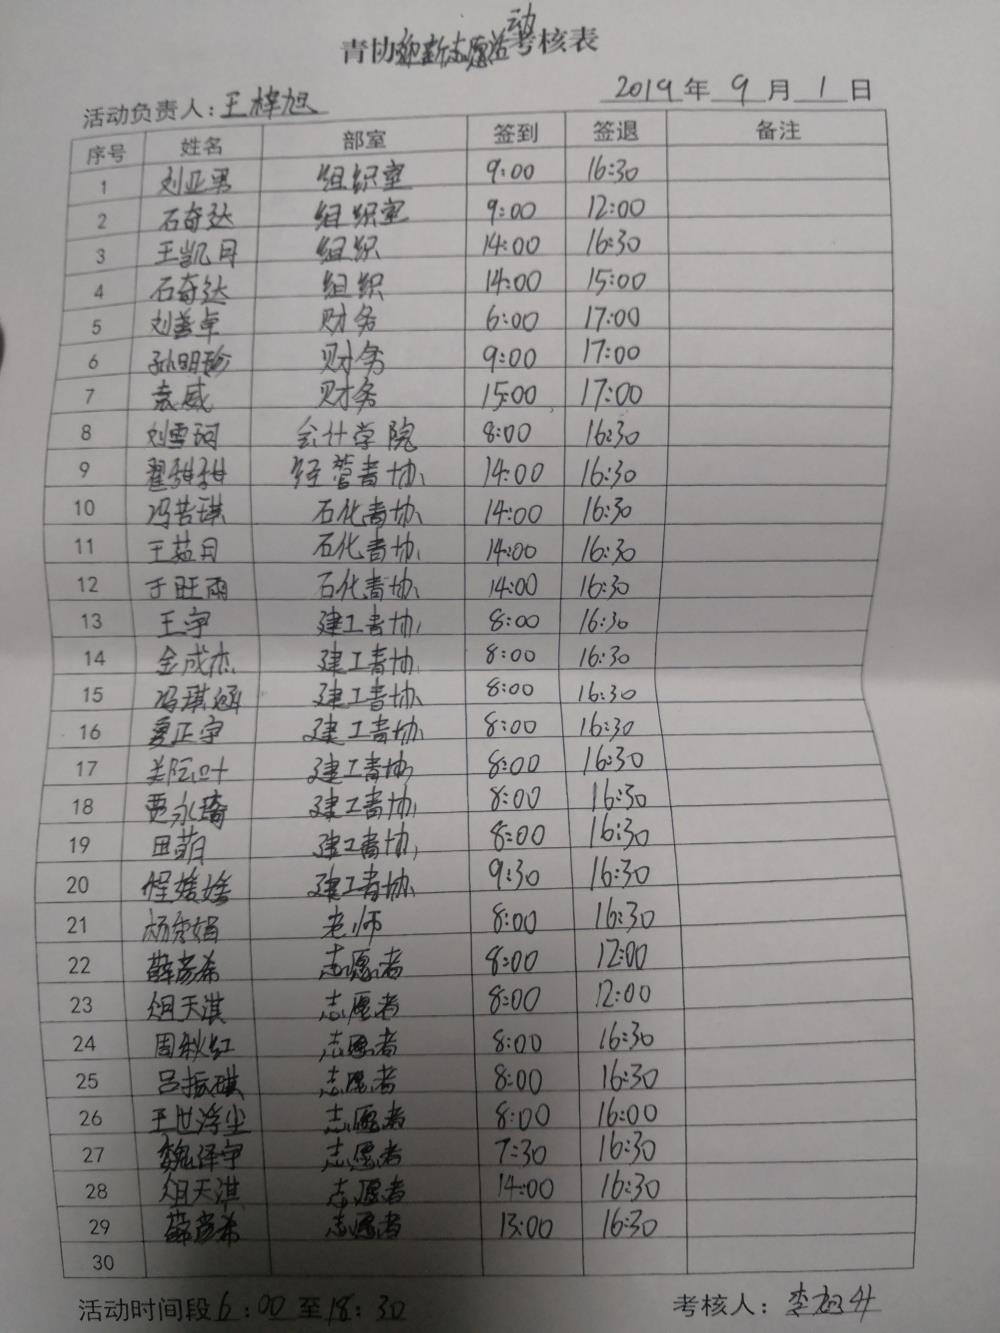 青协迎新志愿活动考核表
活动负责人：王梓旭 2019年9月1日
序号 姓名 部室 签到 签退 备注
1 刘亚男 组织室 9:00 16:30
2 石奇达 组织室 9:00 12:00
3 王凯月 组织 14:00 16:30
4 石奇达 组织 14:00 15:00
5 刘善卓 财务 6:00 17:00
6 孙明珍 财务 9:00 17:00
7 袁威 财务 15:00 17:00
8 刘雪珂 会计学院 8:00 16:30
9 翟甜甜 经管青协 14:00 16:30
10 冯若琪 石化青协 14:00 16:30
11 王茹月 石化青协 14:00 16:30
12 于旺雨 石化青协 14:00 16:30
13 王宇 建工青协 8:00 16:30
14 金成杰 建工青协 8:00 16:30
15 冯琪涵 建工青协 8:00 16:30
16 夏正宇 建工青协 8:00 16:30
17 建工青协 8:00 16:30
18 贾永琦 建工青协 8:00 16:30
19 田萌 建工青协 8:00 16:30
20 程媛媛 建工青协 9:30 16:30
21 杨秀娟 老师 8:00 16:30
22 薛彦希 志愿者 8:00 12:00
23 俎天淇 志愿者 8:00 12:00
24 周秋红 志愿者 8:00 16:30
25 吕振琪 志愿者 8:00 16:30
26 王世浮尘 志愿者 8:00 16:00
27 魏泽宇 志愿者 7:30 16:30
28 俎天淇 志愿者 14:00 16:30
29 薛彦希 志愿者 13:00 16:30
30
活动时间段6:00至18:30 考核人：李旭升